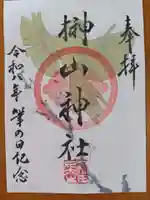 奉拝
榊山神社
令和六年 筆の日記念